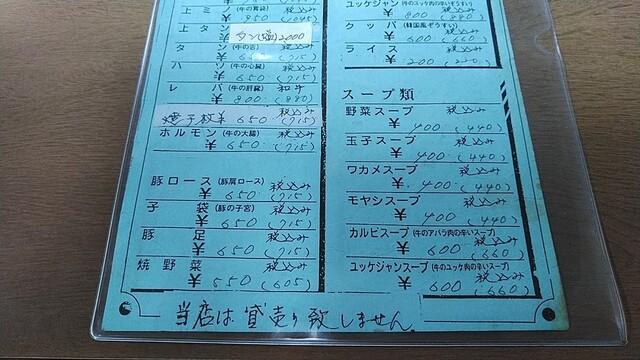 上ミノ (牛の胃袋) 税込み
¥ 950 (1045)
上タン 税込み
タン(塩)2,000
タン (牛の舌) 税込み
¥ 650 (715)
ハツ (牛の心臓) 税込み
¥ 650 (715)
レバー (牛の肝臓) 和牛
¥ 800 (880)
税込み
¥ 650 (715)
ホルモン (牛の大腸) 税込み
¥ 650 (715)
豚ロース (豚肩ロース) 税込み
¥ 650 (715)
子袋 (豚の子宮) 税込み
¥ 650 (715)
豚足 税込み
¥ 650 (715)
焼野菜 税込み
¥ 550 (605)
ユッケジャン (牛のユッケ肉の辛いスープ)
¥ 800 (880)
クッパ (韓国風ぞうすい) 税込み
¥ 600 (660)
ライス 税込み
¥ 200 (220)
スープ類
野菜スープ 税込み
¥ 400 (440)
玉子スープ 税込み
¥ 400 (440)
ワカメスープ 税込み
¥ 400 (440)
モヤシスープ 税込み
¥ 400 (440)
カルビスープ (牛のアバラ肉の辛いスープ) 税込み
¥ 600 (660)
ユッケジャンスープ (牛のユッケ肉の辛いスープ) 税込み
¥ 600 (660)
当店は貸売り致しません。